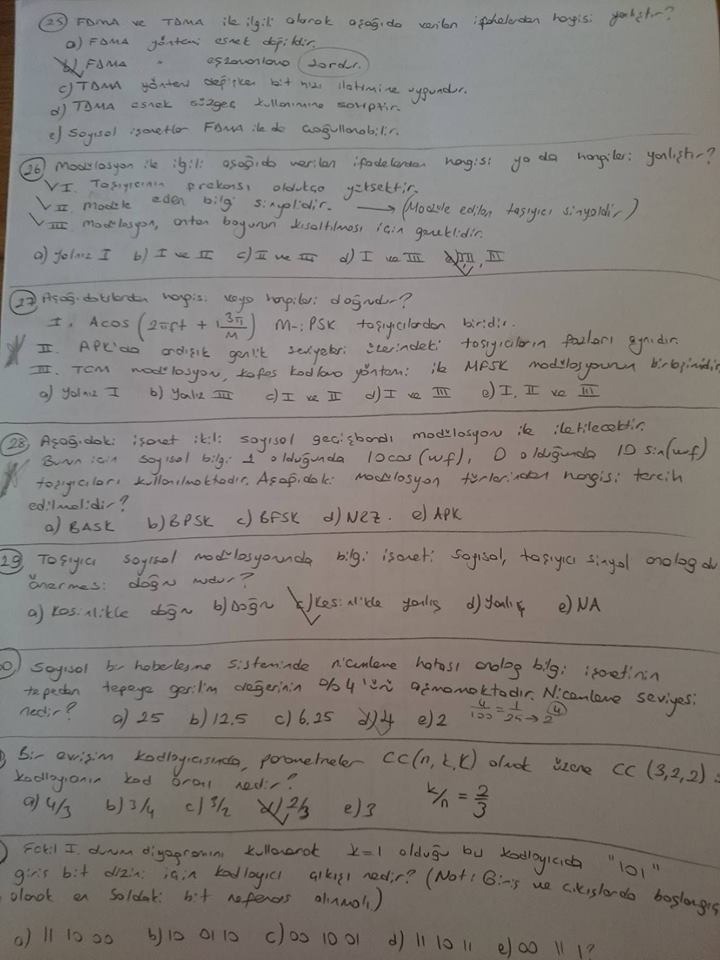 25) FDMA ve TDMA ile ilgili olarak aşağıda verilen ifadelerden hangisi yanlıştır?
a) FDMA yöntemi esnek değildir.
b) FDMA " eşzamanlama zordur.
c) TDMA yöntemi değişken bit hızı iletimine uygundur.
d) TDMA esnek süzgeç kullanımına sahiptir.
e) Sayısal işaretler FDMA ile de çoğullanabilir.
26) Modülasyon ile ilgili aşağıda verilen ifadelerden hangisi ya da hangileri yanlıştır?
I. Taşıyıcının frekansı oldukça yüksektir.
II. Modüle eden bilgi sinyalidir. → (Modüle edilen taşıyıcı sinyaldir)
III. Modülasyon, anten boyunun kısaltılması için gereklidir.
a) Yalnız I b) I ve II c) II ve III d) I ve III e) I, II, III
27) Aşağıdakilerden hangisi veya hangileri doğrudur?
I. A cos (2πft + 3π/M) M-PSK taşıyıcılardan biridir.
II. APK'da ardışık genlik seviyeleri üzerindeki taşıyıcıların fazları aynıdır.
III. TCM modülasyon, kafes kodlama yöntemi ile MFSK modülasyonun birleşimidir.
a) Yalnız I b) Yalnız III c) I ve II d) I ve III e) I, II ve III
28) Aşağıdaki işaret ikili sayısal geçişbandı modülasyon ile iletilecektir.
Bunun için sayısal bilgi 1 olduğunda 10cos(wt), 0 olduğunda 10 sin(wt)
taşıyıcıları kullanılmaktadır. Aşağıdaki modülasyon türlerinden hangisi tercih
edilmelidir?
a) BASK b) BPSK c) BFSK d) NRZ e) APK
29) Taşıyıcı sayısal modülasyonunda bilgi işareti sayısal, taşıyıcı sinyal analogdu
önermesi doğru mudur?
a) Kesinlikle doğru b) Doğru c) Kesinlikle yanlış d) Yanlış e) NA
0) Sayısal bir haberleşme sisteminde nicemleme hatası analog bilgi işaretinin
tepeden tepeye gerilim değerinin %4'ünü aşmamaktadır. Nicemleme seviyesi
nedir? a) 25 b) 12.5 c) 6.25 d) 4 e) 2 4/100 = 1/25 → 2^4
Bir evrişim kodlayıcısında, parametreler CC(n, k, K) olmak üzere CC (3,2,2)
kodlayıcının kod oranı nedir?
a) 4/3 b) 3/4 c) 3/2 d) 2/3 e) 3 k/n = 2/3
Şekil I. durum diyagramını kullanarak k=1 olduğu bu kodlayıcıda "101"
giriş bit dizini için kodlayıcı çıkışı nedir? (Not: Giriş ve çıkışlarda başlangıç
olarak en soldaki bit referans alınmalı)
a) 11 10 00 b) 10 01 10 c) 00 10 01 d) 11 10 11 e) 00 11 1?